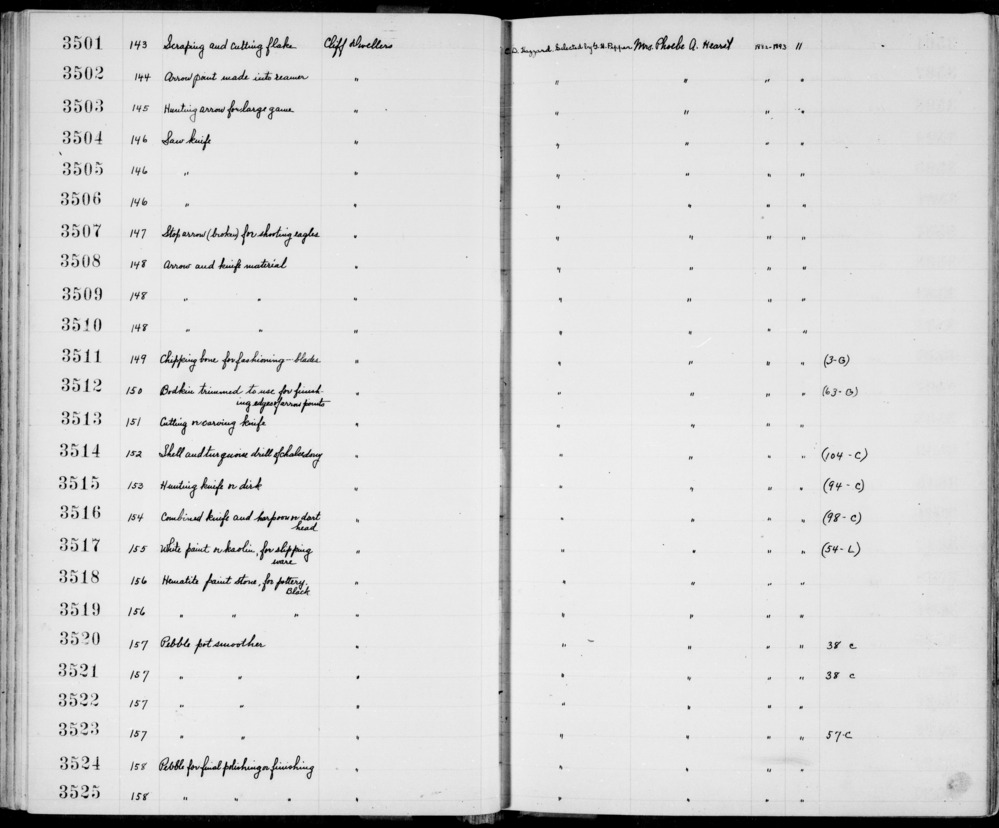 3501 143 Scraping and cutting flake Cliff Dwellers C. D. Hazzard. Selected by G. H. Pepper Mrs. Phoebe A. Hearst "
3502 144 Arrow point made into reamer " " " " "
3503 145 Hunting arrow for large game " " " " "
3504 146 Saw knife " " " " "
3505 146 " " " " " "
3506 146 " " " " " "
3507 147 Stop arrow (broken) for shooting eagles " " " " "
3508 148 Arrow and knife material " " " " "
3509 148 " " " " " " "
3510 148 " " " " " " "
3511 149 Chipping bone for fashioning - blades " " " " " (3-G)
3512 150 Bodkin trimmed to use for finish- " " " " " (63-G)
ing edges of arrow points
3513 151 Cutting or carving knife " " " " "
3514 152 Shell and turquoise drill of chalcedony " " " " " (104-C)
3515 153 Hunting knife or dirk " " " " " (94-C)
3516 154 Combined knife and harpoon or dart " " " " " (98-C)
head
3517 155 White paint or kaolin, for slipping " " " " " (54-L)
ware
3518 156 Hematite paint stone, for pottery, " " " " "
Black
3519 156 " " " " " " " "
3520 157 Pebble pot smoother " " " " " 38 C
3521 157 " " " " " " " 38 C
3522 157 " " " " " " "
3523 157 " " " " " " " 57-C
3524 158 Pebble for final polishing or finishing " " " " "
3525 158 " " " " " " " "